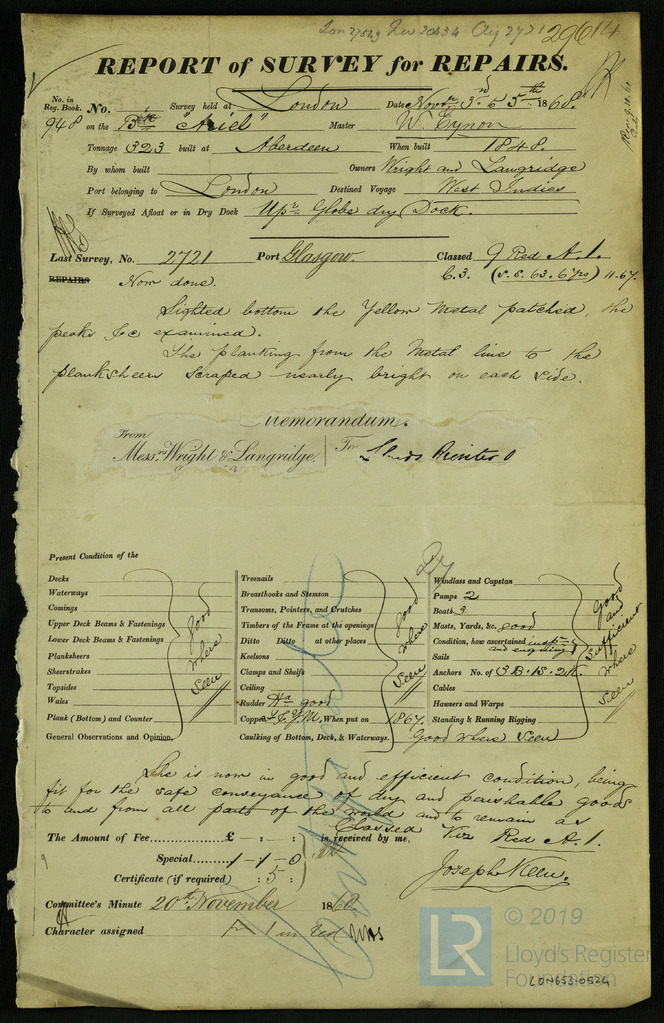 Lon 27549 2721 29614
REPORT of SURVEY for REPAIRS.
No. in Reg. Book. No. Survey held at London Date Novr. 3rd & 5th 1868
948 on the Bk "Ariel" Master W. Eynon
Tonnage 323 built at Aberdeen When built 1848.
By whom built Owners Wright and Langridge
Port belonging to London Destined Voyage West Indies
If Surveyed Afloat or in Dry Dock Upr. Globe dry Dock.
Last Survey, No. 2721 Port Glasgow. Classed 9 Red A.1.
C.3. (S.S. 63. 6 yrs) 11.67.
REPAIRS Now done.
Sighted bottom the Yellow Metal patched, the
peaks &c examined.
The planking from the Metal line to the
planksheers scraped nearly bright on each side.
Memorandum.
From
Messrs. Wright & Langridge. To
Present Condition of the
Decks
Waterways
Comings
Upper Deck Beams & Fastenings
Lower Deck Beams & Fastenings
Planksheers
Sheerstrakes
Topsides
Wales
Plank (Bottom) and Counter
good where seen
General Observations and Opinion,
Treenails
Breasthooks and Stemson
Transoms, Pointers, and Crutches
Timbers of the Frame at the openings
Ditto Ditto at other places
Keelsons
Clamps and Shelfs
Ceiling
good where seen
Rudder good
Copper Y.M. When put on 1867.
Caulking of Bottom, Deck, & Waterways. Good where seen
Windlass and Capstan
Pumps 2
Boats 3
Masts, Yards, &c. good
Condition, how ascertained insptn. and enquiry
Sails
Anchors No. of 3B.1S.2K.
Cables
Hawsers and Warps
Standing & Running Rigging
Good and sufficient where seen
She is now in good and efficient condition, being
fit for the safe conveyance of dry and perishable goods
to and from all parts of the world and to remain as
Classed Viz Red A.1.
The Amount of Fee £ - : - : is received by me,
Special 1-1-0
Certificate (if required) : 5 :
Joseph Keen.
Committee's Minute 20th November 1868
Character assigned 1 in red
© 2019
LR
Lloyd's Register
Foundation
LON653-0524